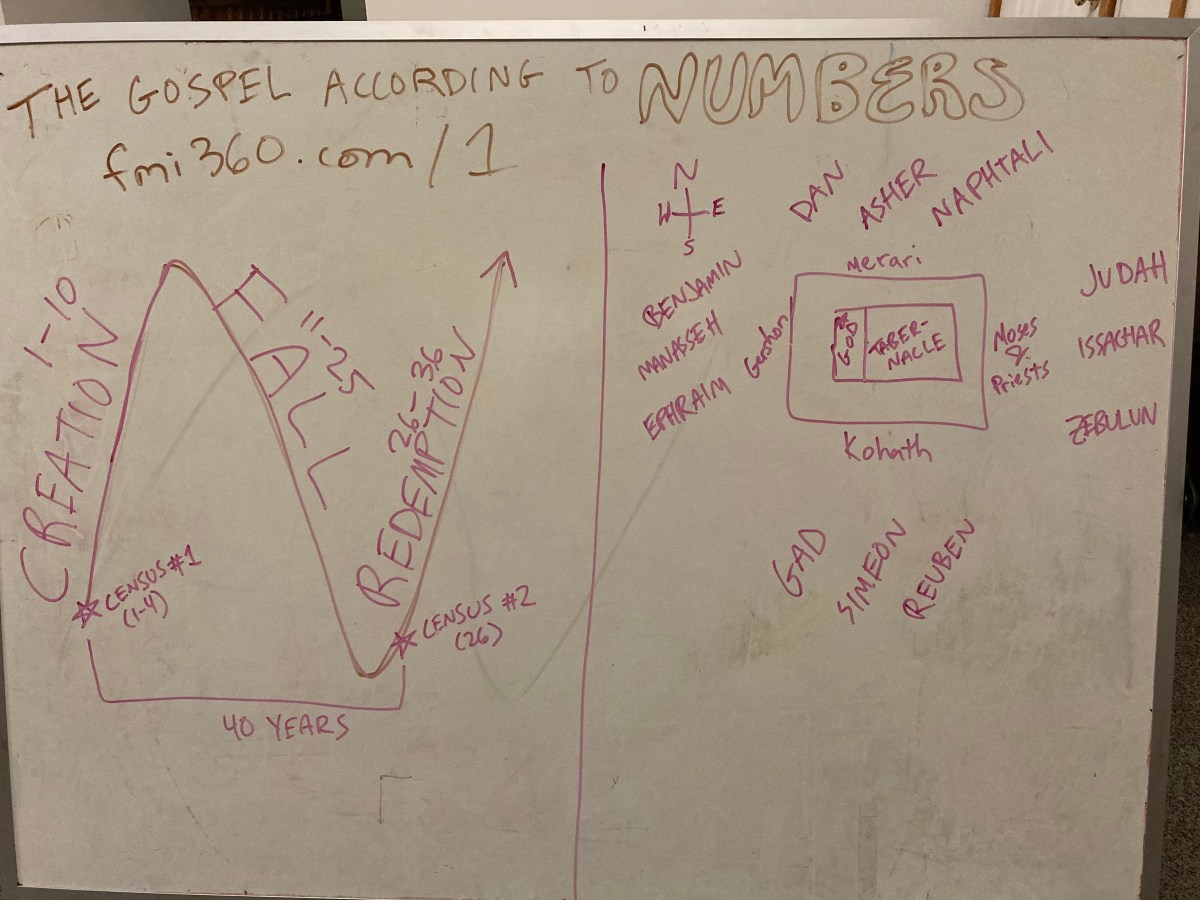 THE GOSPEL ACCORDING TO NUMBERS
fmi360.com/1
CREATION
1-10
FALL
11-25
REDEMPTION
26-36
CENSUS #1
(1-4)
CENSUS #2
(26)
40 YEARS
N
W E
S
DAN
ASHER
NAPHTALI
BENJAMIN
MANASSEH
EPHRAIM
Merari
Gershon
GOD
TABER-
NACLE
Moses
&
Priests
Kohath
JUDAH
ISSACHAR
ZEBULUN
GAD
SIMEON
REUBEN